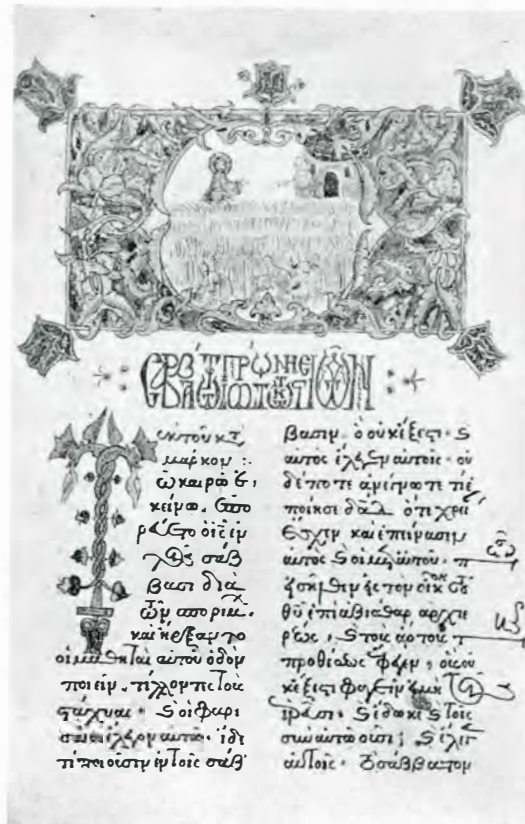 ἐκ τοῦ κτ
μάρκον :
Τῶ καιρῶ ἐ
κείνω. ἐπο
ρεύετο ὁ ις ἐν
τοῖς σάβ
βασι διὰ
τῶν σπορίμ.
καὶ ἤρξαντο
οἱ μαθηταὶ αὐτοῦ ὁδὸν
ποιεῖν, τίλλοντες τοὺς
στάχυας. ϗ οἱ φαρι
σαῖοι ἔλεγον αὐτῶ. ἴδε
τί ποιοῦσιν ἐν τοῖς σάβ
βασιν. ὃ οὐκ ἔξεστι. ϗ
αὐτὸς ἔλεγεν αὐτοῖς. οὐ
δέποτε ἀνέγνωτε τί ἐ
ποίησε δαδ ὅτε χρεί
ἔσχεν καὶ ἐπείνασεν
αὐτὸς ϗ οἱ μετ αὐτοῦ. π
ῶς εἰσῆλθεν εἰς τὸν οἶκον τοῦ
θυ ἐπὶ ἀβιάθαρ ἀρχιε
ρέως, ϗ τοὺς ἄρτους τ
προθέσεως ἔφαγεν, οὓς οὐ
κ ἔξεστι φαγεῖν εἰ μὴ τοῖς
ἱερεῦσι. ϗ ἔδωκε ϗ τοῖς
σὺν αὐτῶ οὖσι; ϗ ἔλεγεν
αὐτοῖς. τὸ σάββατον